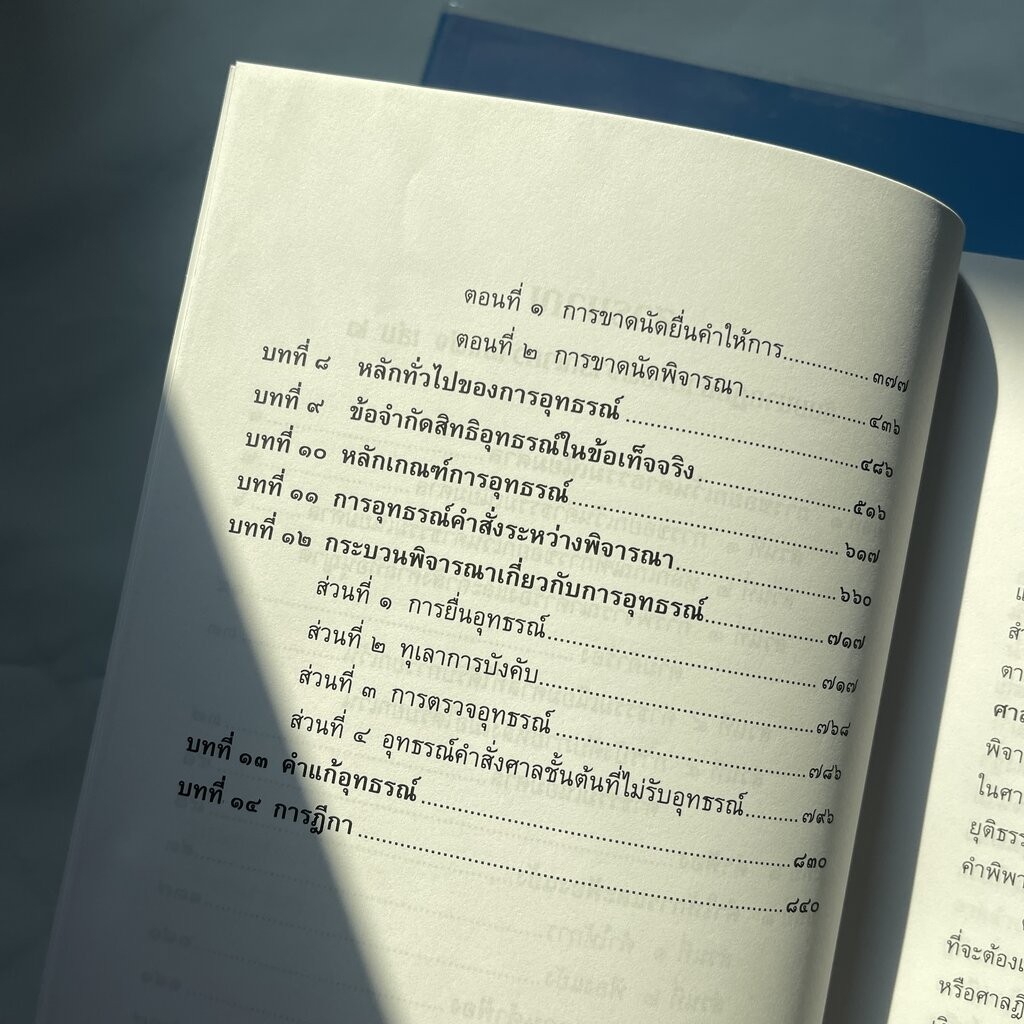 ตอนที่ ๑ การขาดนัดยื่นคำให้การ.......... ๓๗๗
ตอนที่ ๒ การขาดนัดพิจารณา.......... ๔๓๖
บทที่ ๘ หลักทั่วไปของการอุทธรณ์.......... ๔๘๖
บทที่ ๙ ข้อจำกัดสิทธิอุทธรณ์ในข้อเท็จจริง.......... ๕๑๖
บทที่ ๑๐ หลักเกณฑ์การอุทธรณ์.......... ๖๑๗
บทที่ ๑๑ การอุทธรณ์คำสั่งระหว่างพิจารณา.......... ๖๖๐
บทที่ ๑๒ กระบวนพิจารณาเกี่ยวกับการอุทธรณ์.......... ๗๑๗
ส่วนที่ ๑ การยื่นอุทธรณ์.......... ๗๑๗
ส่วนที่ ๒ ทุเลาการบังคับ.......... ๗๖๘
ส่วนที่ ๓ การตรวจอุทธรณ์.......... ๗๘๖
ส่วนที่ ๔ อุทธรณ์คำสั่งศาลชั้นต้นที่ไม่รับอุทธรณ์.......... ๗๙๖
บทที่ ๑๓ คำแก้อุทธรณ์.......... ๘๓๐
บทที่ ๑๔ การฎีกา.......... ๘๔๐
ตา
ศาล
พิจา
ในศา
ยุติธรร
คำพิพา
ที่จะต้องเ
หรือศาลฎี